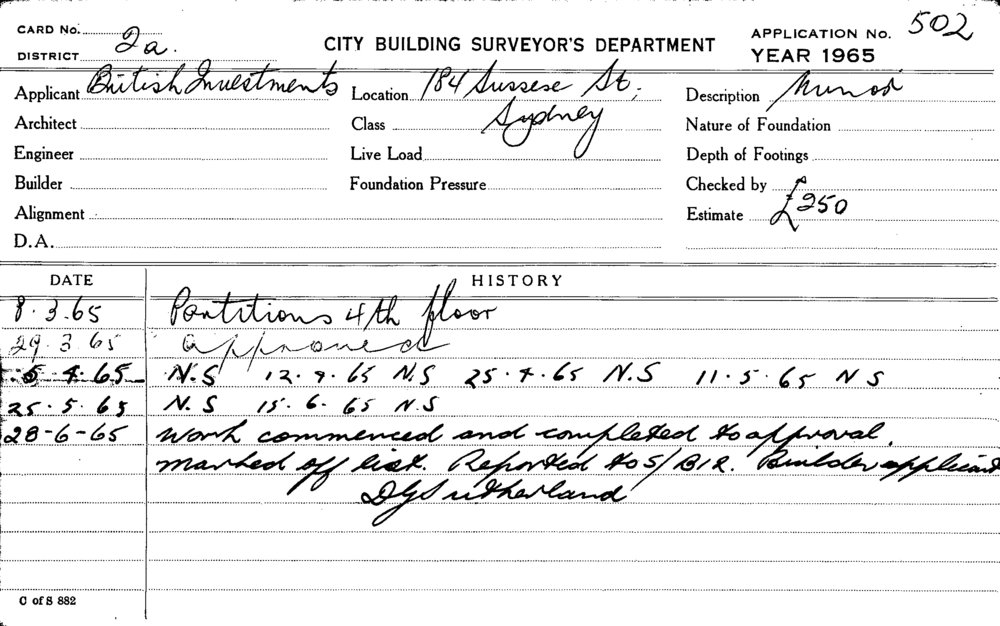 CARD No.
DISTRICT 2a.
CITY BUILDING SURVEYOR'S DEPARTMENT
APPLICATION No. 502
YEAR 1965
Applicant British Investments
Location 184 Sussex St,
Sydney
Description Minor
Architect
Class
Nature of Foundation
Engineer
Live Load
Depth of Footings
Builder
Foundation Pressure
Checked by
Alignment
Estimate £250
D.A.
DATE HISTORY
8.3.65 Partitions 4th floor
29.3.65 approved
5.4.65 N.S 12.4.65 N.S 25.4.65 N.S 11.5.65 N S
25.5.65 N.S 15.6.65 N.S
28-6-65 Work commenced and completed to approval.
marked off list. Reported to S/BIR. Builder applicant
DG Sutherland
C of S 882